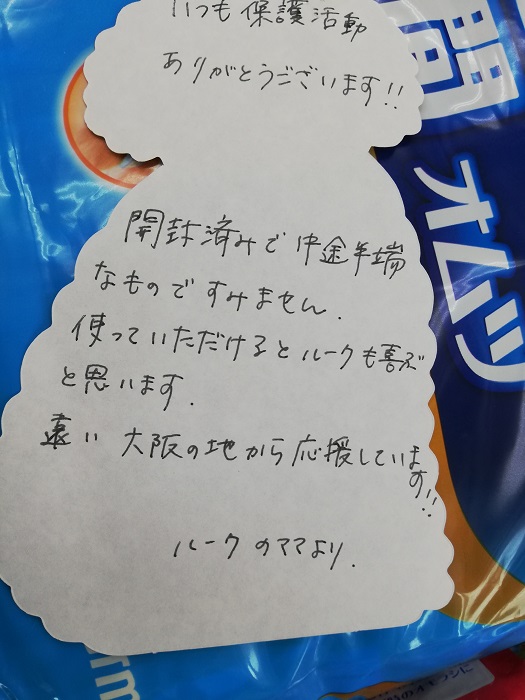 いつも保護活動
ありがとうございます!!
開封済みで中途半端
なものですみません.
使っていただけるとルークも喜ぶ
と思います.
遠い 大阪の地から応援していま
す!!
ルークのママより.
間
オムツ